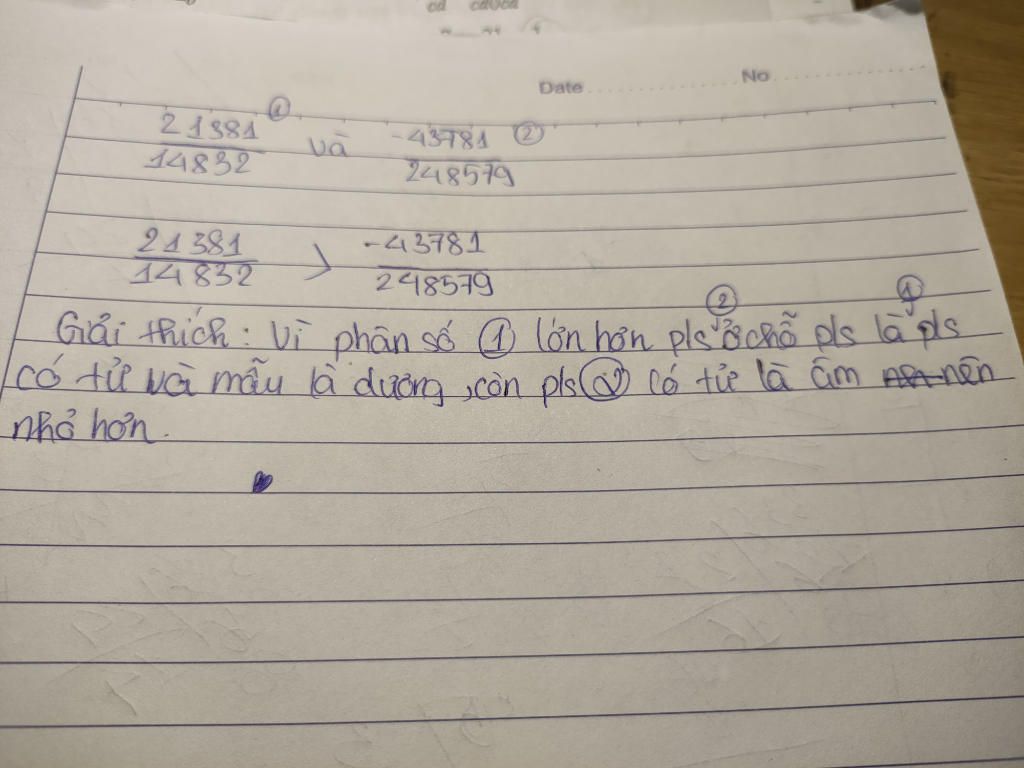 cd cdvcd
Date No
21381 ① và -43781 ②
14832 248579
21381 > -43781
14832 248579
② ①
Giải thích: Vì phân số ① lớn hơn pls ở chỗ pls là pls
có tử và mẫu là dương, còn pls ② có tử là âm nên nên
nhỏ hơn.